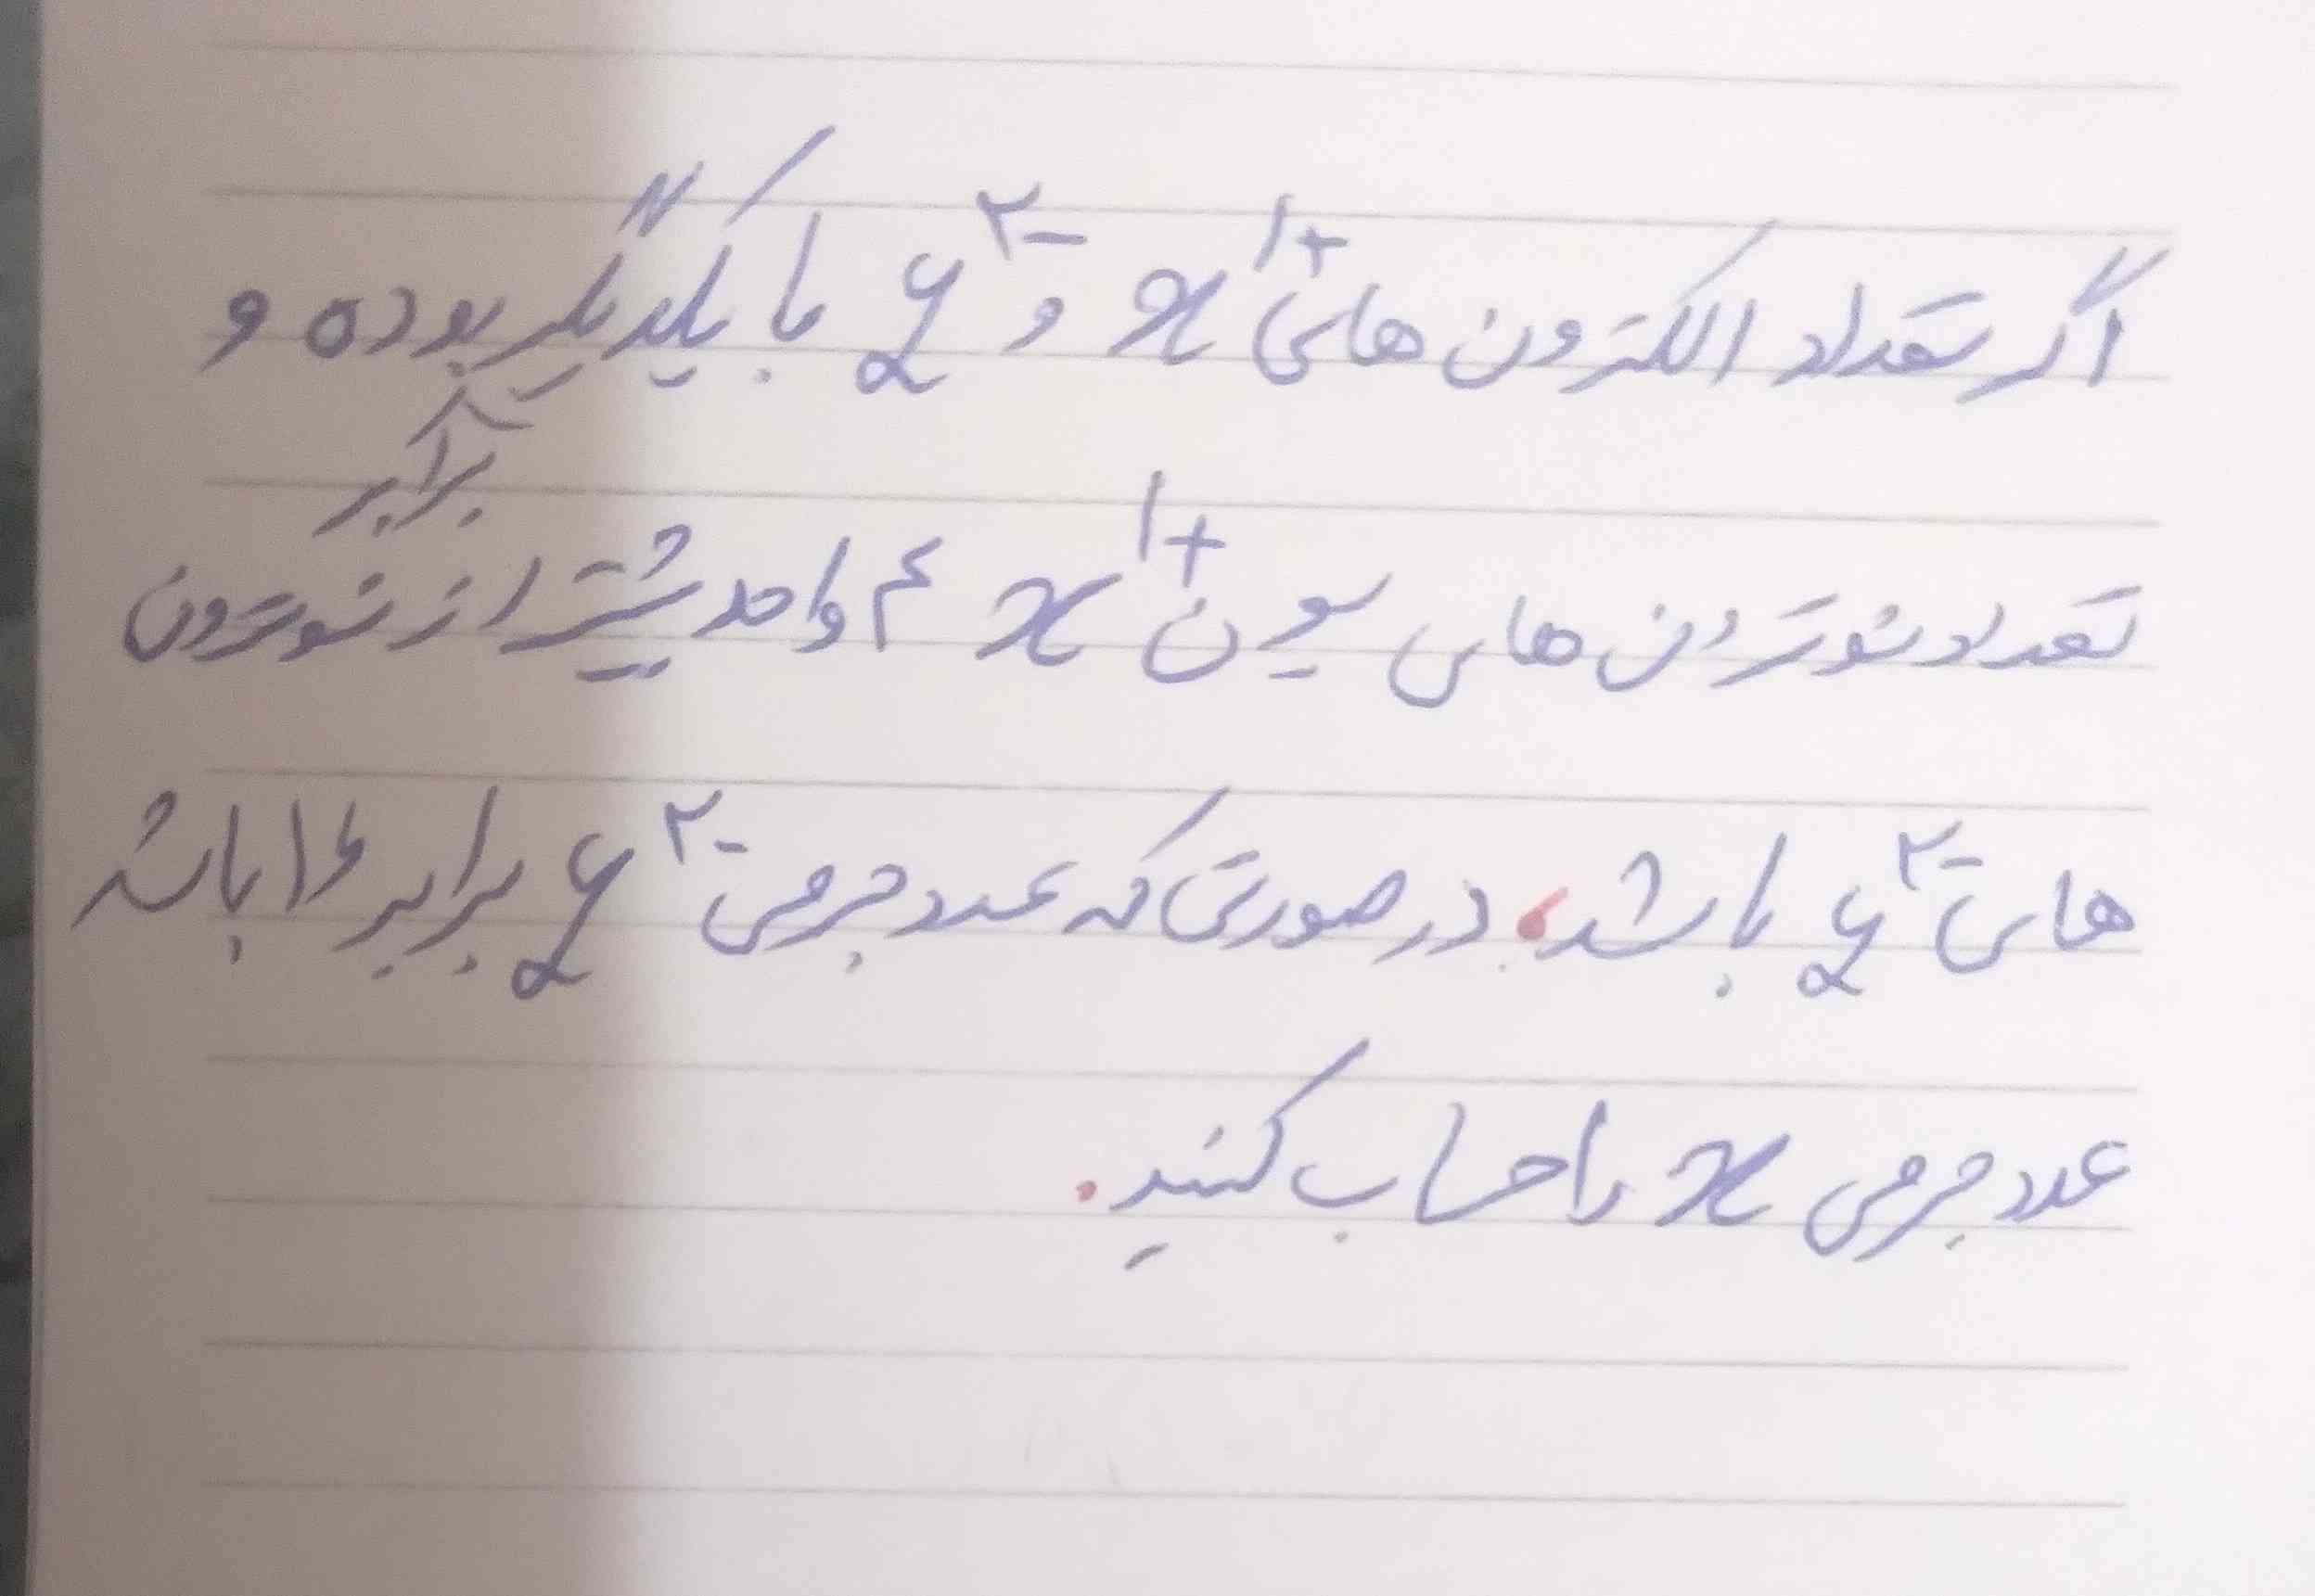 اگر تعداد الکترون های x¹⁺ و y²⁻ با یکدیگر برابر بوده و
تعداد نوترون های یون x¹⁺ ۴ واحد بیشتر از نوترون
های y²⁻ باشد، در صورتی که عدد جرمی y²⁻ برابر ۱۶ باشد
عدد جرمی x را حساب کنید.